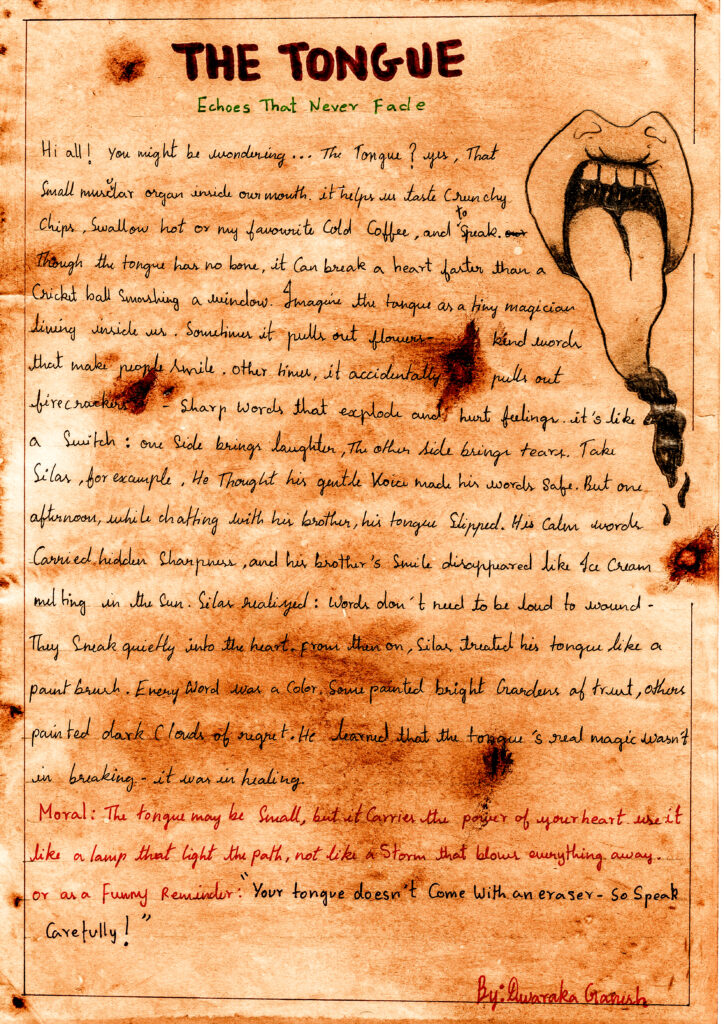 THE TONGUE
Echoes That Never Fade
Hi all! you might be wondering... The Tongue? yes, That
Small muscular organ inside our mouth. it helps us taste Crunchy
Chips, Swallow hot or my favourite Cold Coffee, and to Speak. our
Though the tongue has no bone, it Can break a heart faster than a
Cricket ball Smashing a window. Imagine the tongue as a tiny magician
living inside us. Sometimes it pulls out flowers- kind words
that make people Smile. Other times, it accidentally pulls out
firecrackers - Sharp words that explode and hurt feelings. it's like
a Switch: one Side brings laughter, The other side brings tears. Take
Silas, for example. He Thought his gentle Voice made his words Safe. But one
afternoon, while chatting with his brother, his tongue Slipped. His Calm words
Carried hidden Sharpness, and his brother's Smile disappeared like Ice Cream
melting in the Sun. Silas realized: Words don't need to be loud to wound-
They Sneak quietly into the heart. From then on, Silas treated his tongue like a
paint brush. Every Word was a Color. Some painted bright Gardens of trust, others
painted dark Clouds of regret. He learned that the tongue's real magic wasn't
in breaking - it was in healing.
Moral: The tongue may be Small, but it Carries the power of your heart use it
like a lamp that light the path, not like a Storm that blows everything away.
or as a Funny Reminder: "Your tongue doesn't Come With an eraser - So Speak
Carefully!"
By: Dwaraka Ganesh